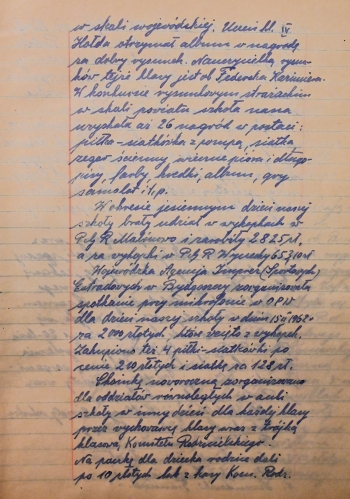 w skali wojewódzkiej. Uczeń kl. IV
Hołda otrzymał album w nagrodę
za dobry rysunek. Nauczycielką rysun-
ków tejże klasy jest ob. Kazimiera.
W konkursie rysunkowym strażackim
w skali powiatu szkoła nasza
uzyskała aż 26 nagród w postaci:
piłka-siatkówka z pompą, siatka
zegar ścienny, wieczne pióra i długo-
pisy, farby, kredki, album, gry
samolot i t.p.
W okresie jesiennym dzieci naszej
szkoły brały udział w wykopkach w
P.G.R. Malinowo i zarobiły 2825 zł,
a za wykopki w P.G.R. 6530 zł
Wojewódzka Agencja Imprez (Sportowych)
Estradowych w Bydgoszczy zorganizowała
spotkanie przy mikrofonie w
dla dzieci naszej szkoły w dniu 1962 r
za 2000 złotych, które wzięto z wykopek.
Zakupiono też 4 piłki-siatkówki po
cenie 210 złotych i siatkę za 128 zł.
Choinkę noworoczną zorganizowano
dla oddziałów równoległych w auli
szkoły w inny dzień dla każdej klasy
przez wychowawcę klasy wraz z trójką
klasową, Komitetu Rodzicielskiego.
Na paczkę dla dziecka rodzice dali
po 10 złotych lub z kasy Kom. Rodz.